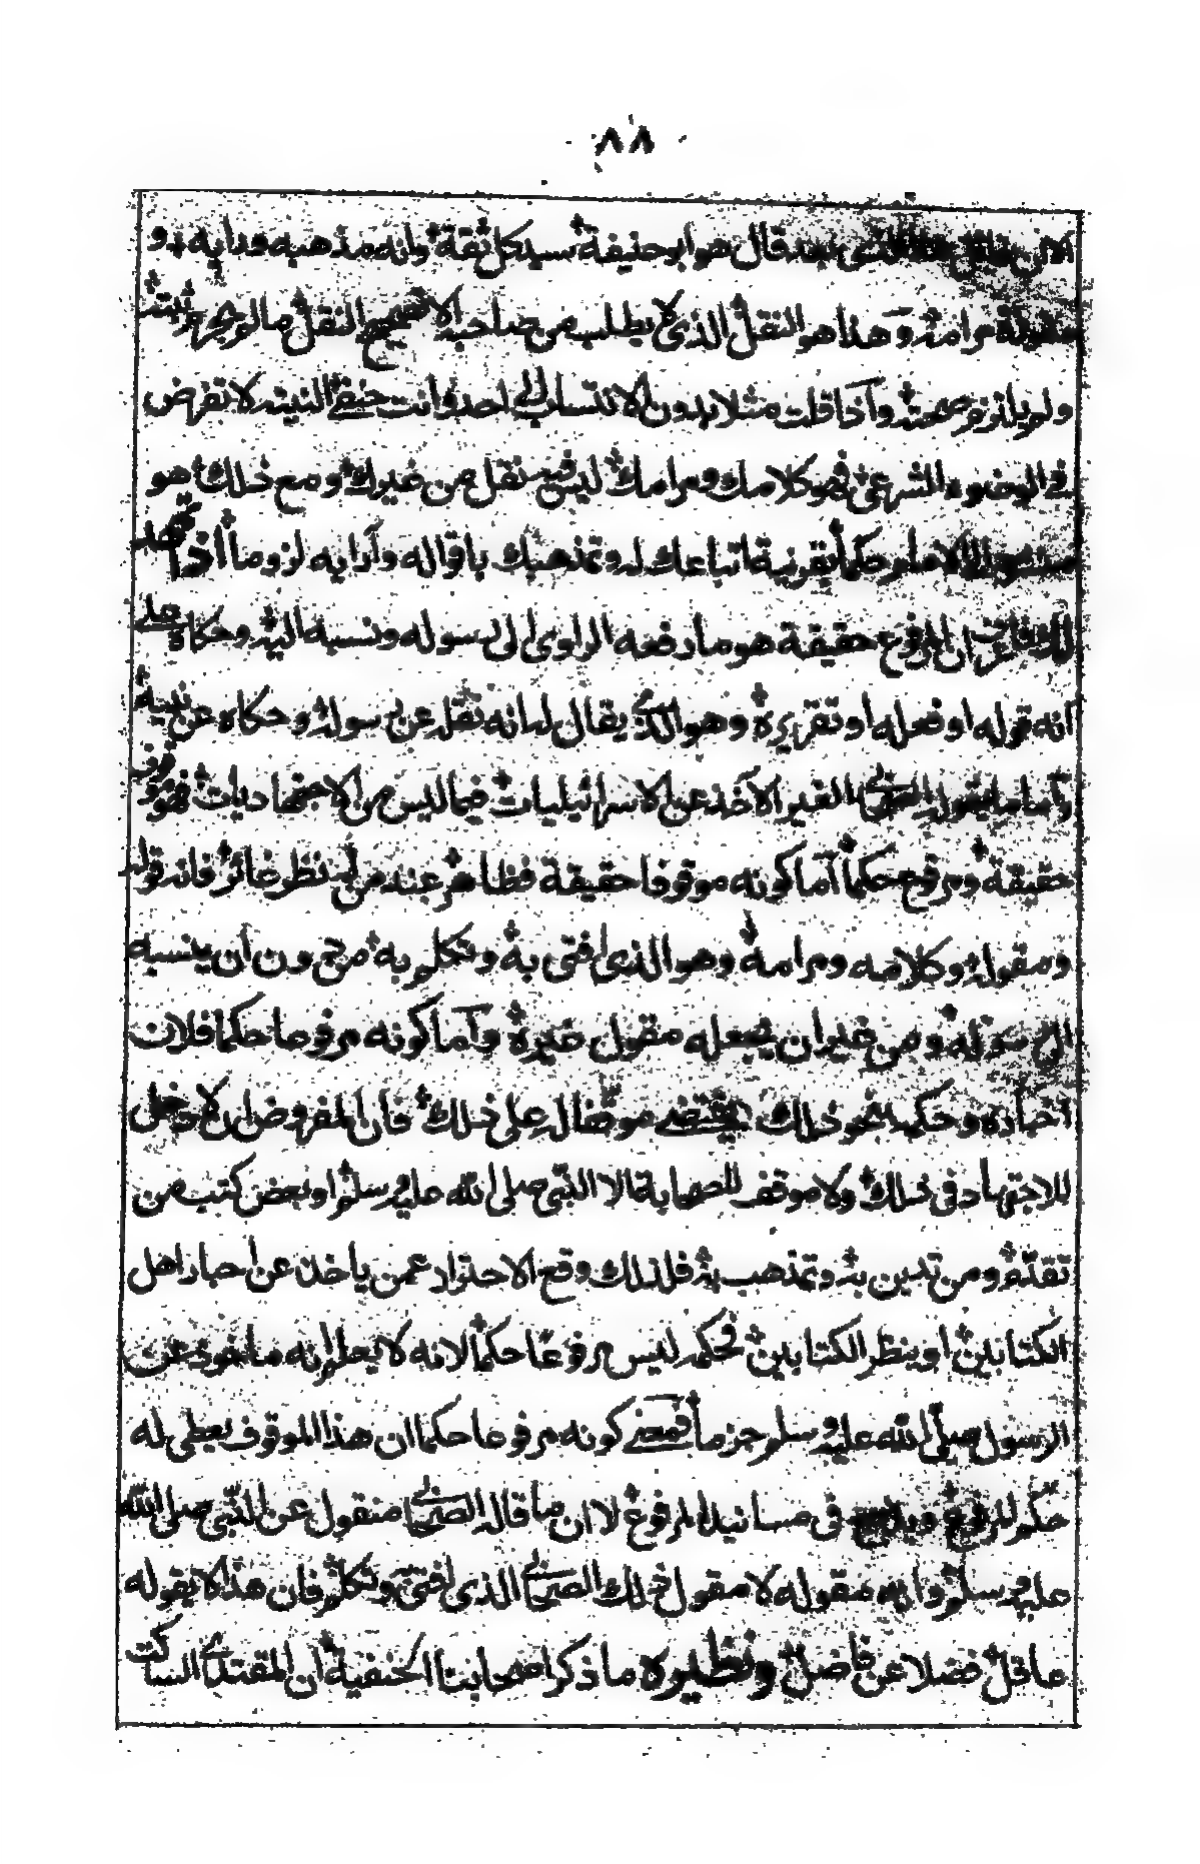 ٨٨
قال هو ابو حنيفة سيد كل ثقة وانه مذهبه ورايه و
مقولة مرامه وهذا هو النقل الذي لا يطلب من صاحبه الا تصحيح النقل ما لو
ولم يلتزم صحته واذا قلت مثلا بدون الانتساب الى احد وانت حنفي النية لا تفرض
في الوضوء الشرعي فهو كلامك ومرامك ليس فيه نقل من غيرك ومع ذلك هو
الامام حكما بقرينة اتباعك له وتمذهبك باقواله وآرائه لزوما اذا
ان المرفوع حقيقة هو ما رفعه الراوي الى رسوله ونسبه اليه وحكاه على
انه قوله او فعله او تقريره وهو الذي يقال له انه نقل عن رسوله وحكاه عن نبيه
واما ما يقول الصحابي الغير الآخذ عن الاسرائيليات فيما ليس من الاجتهاديات فهو موقوف
حقيقة ومرفوع حكما اما كونه موقوفا حقيقة فظاهر عند من له نظر غائر فانه قوله
ومقوله وكلامه ومرامه وهو الذي افتى به وتكلم به من دون ان ينسبه
الى رسوله ومن غير ان يجعله مقول غيره واما كونه مرفوعا حكما فلان
اخباره وحكمه بنحو ذلك يقتضي موقفا له على ذلك فان المفروض ان لا دخل
للاجتهاد في ذلك ولا موقف للصحابة الا النبي صلى الله عليه وسلم او بعض كتب من
تقدمه ومن تدين به وتمذهب به فلذلك وقع الاحتراز عمن ياخذ عن احبار اهل
الكتابين او ينظر الكتابين فحكمه ليس مرفوعا حكما لانه لا يعلم انه ماخوذ عن
الرسول صلى الله عليه وسلم جزما فمعنى كونه مرفوعا حكما ان هذا الموقوف يعطى له
حكم المرفوع ويدرج في مسانيد المرفوع لا ان ما قاله الصحابي منقول عن النبي صلى الله
عليه وسلم وانه مقوله لا مقول ذلك الصحابي الذي افتى وتكلم فان هذا لا يقوله
عاقل فضلا عن فاضل ونظيره ما ذكر اصحابنا الحنفية ان المقتدي الساكت